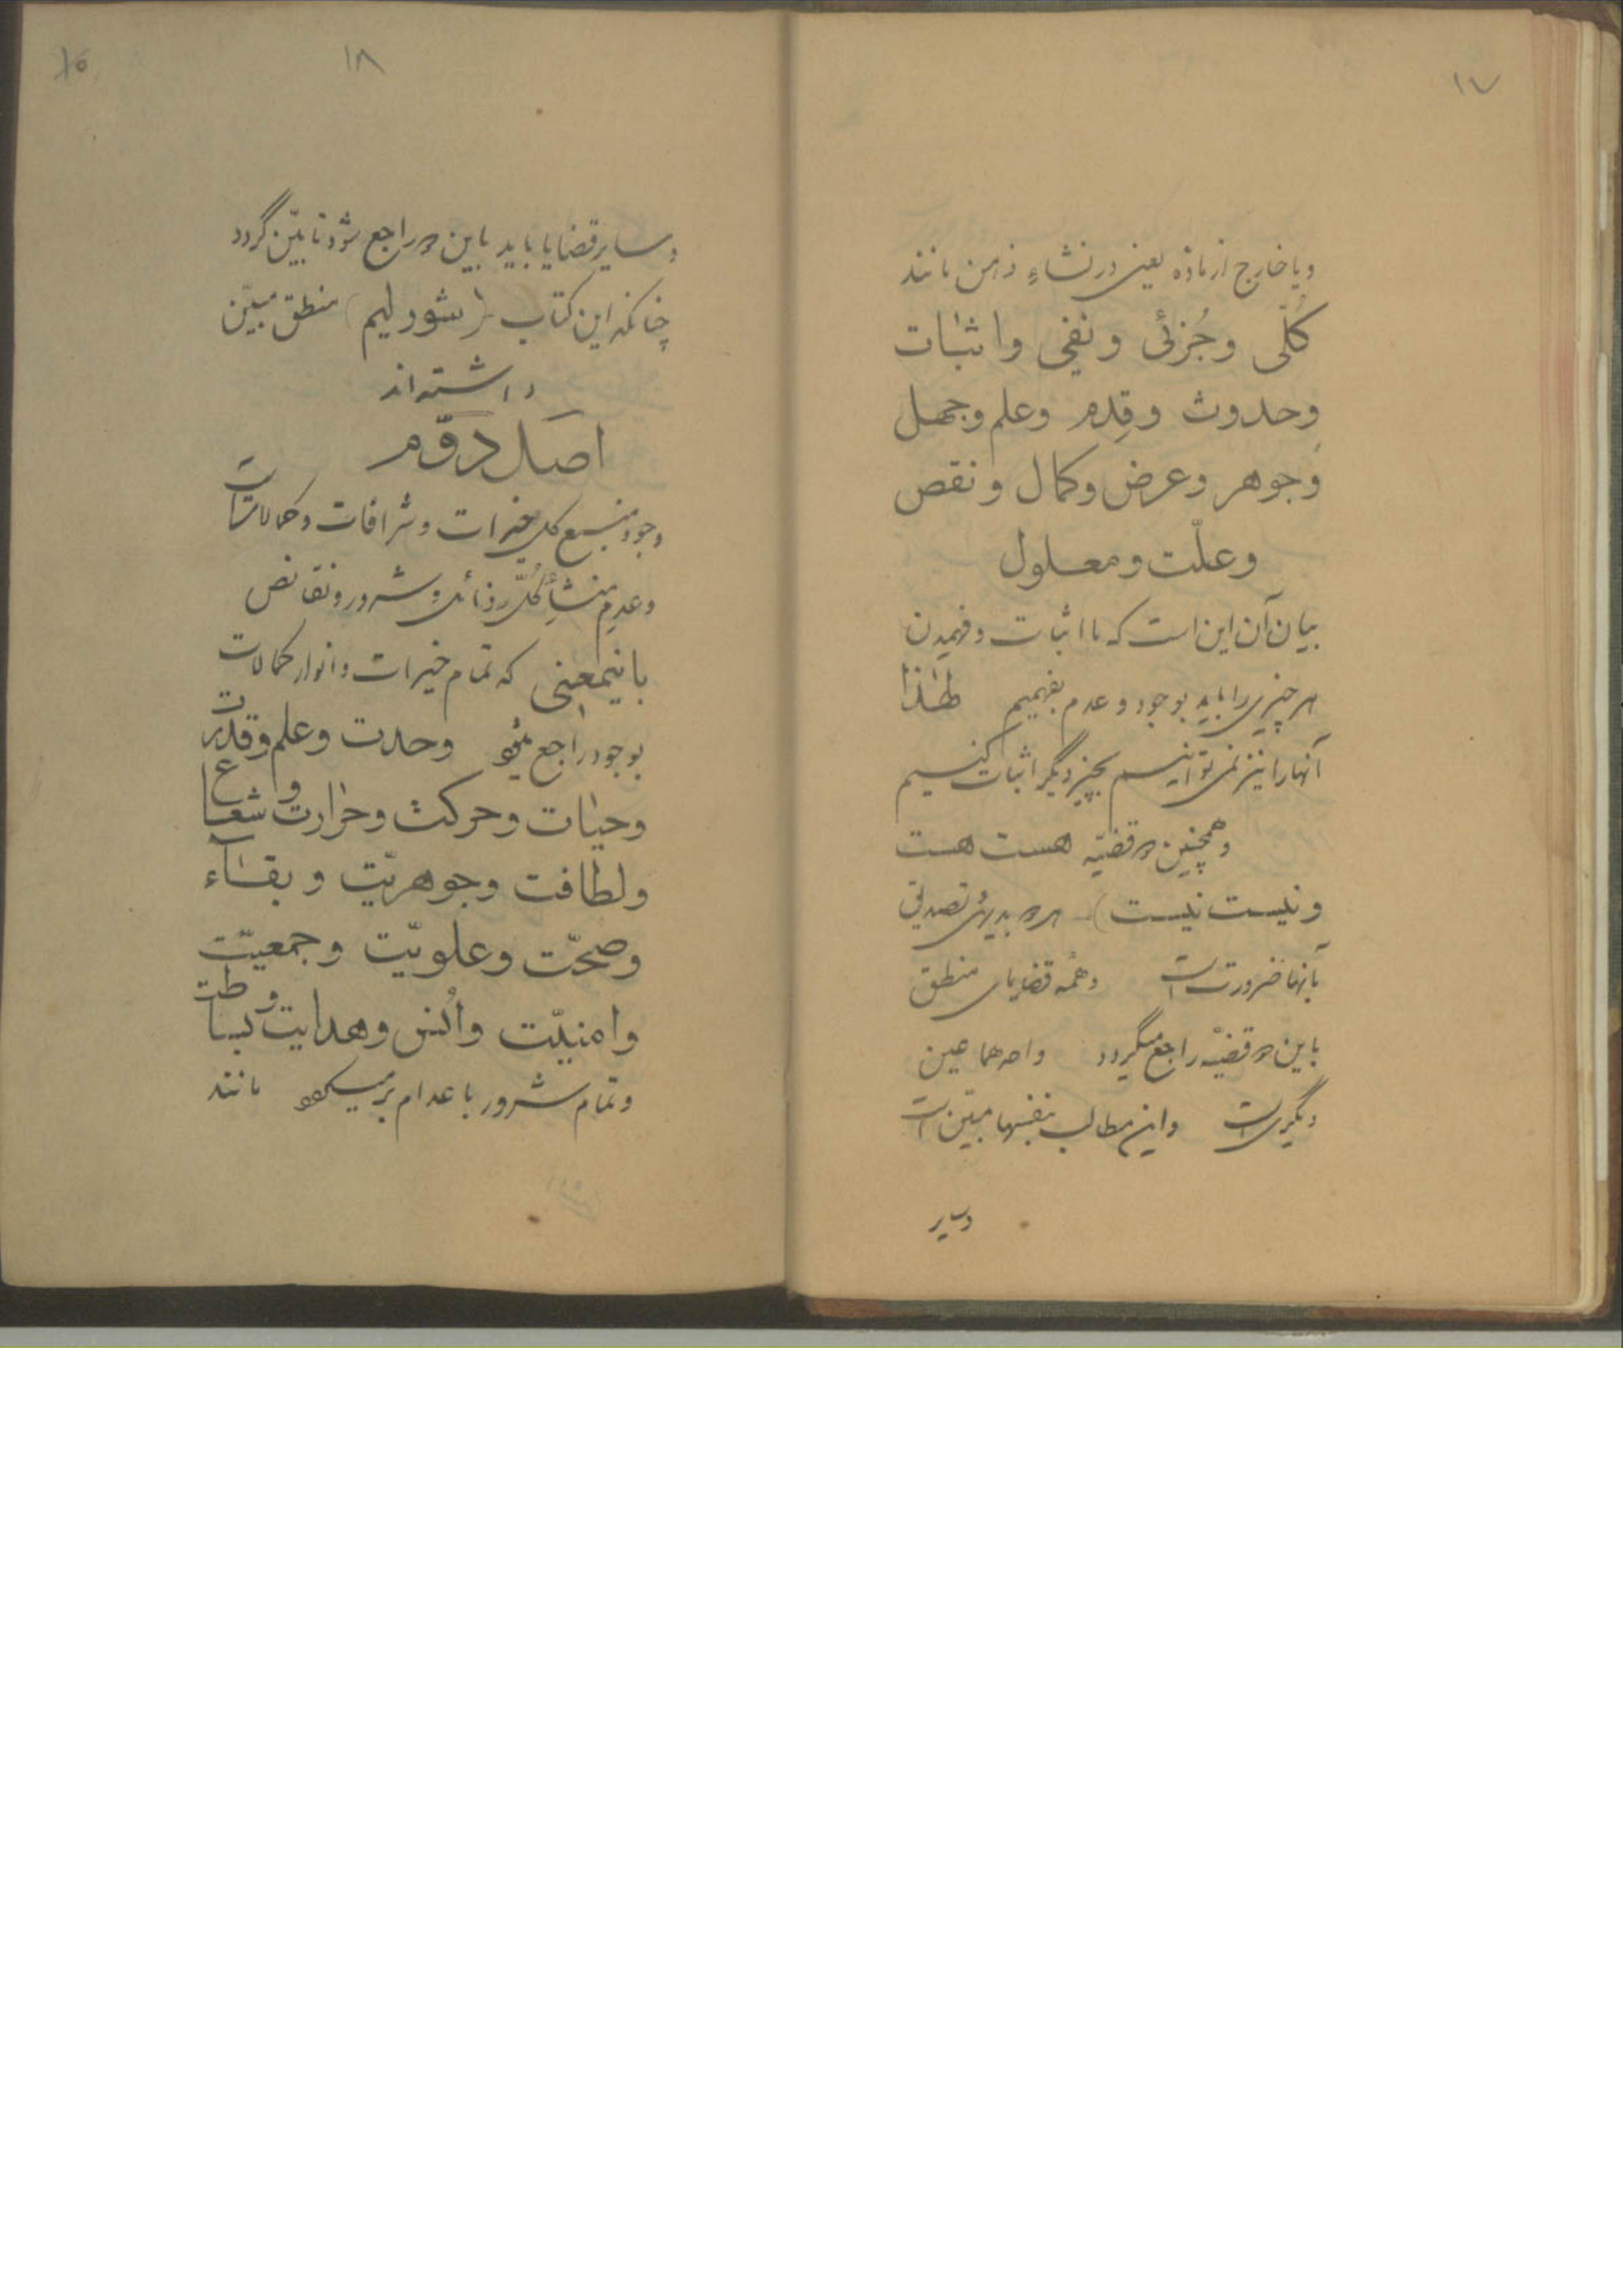 ۱۷
ویا خارج از ماده یعنی در نشاءِ ذهن مانند
کُلّی وجُزئی ونفی واثبات
وحدوث وقِدم وعلم وجهل
وجوهر وعرض وکمال ونقص
وعلّت ومعلول
بیان آن این است که ما اثبات وفهمیدن
هر چیزی را باید بوجود وعدم بفهمیم لهذا
آنها را نیز نمی توانیم بچیز دیگر اثبات کنیم
وهمچنین دو قضیّه هست هست
ونیست نیست) هر دو بدیهی تصدیق
بآنها ضرورت است وهمه قضایای منطق
باین دو قضیّه راجع میگردد واحدهما عین
دیگری است واین مطالب بنفسها مبیّن است
وسایر
۱۸
وسایر قضایا باید باین دو راجع شود تا مبیّن گردد
چنانکه این کتاب (شورلیم) منطق مبیّن
داشته اند
اصل دوّم
وجود منبع کل خیرات وشرافات وکمالات است
وعدم منشأ کُلّ رذائل وشرور ونقائص
باینمعنی که تمام خیرات وانوار کمالات
بوجود راجع میشود وحدت وعلم وقدرت
وحیات وحرکت وحرارت وشعاع
ولطافت وجوهریّت وبقاء
وصحّت وعلویّت وجمعیّت
وامنیّت واُنس وهدایت وبساطت
وتمام شرور باعدام برمیگردد مانند